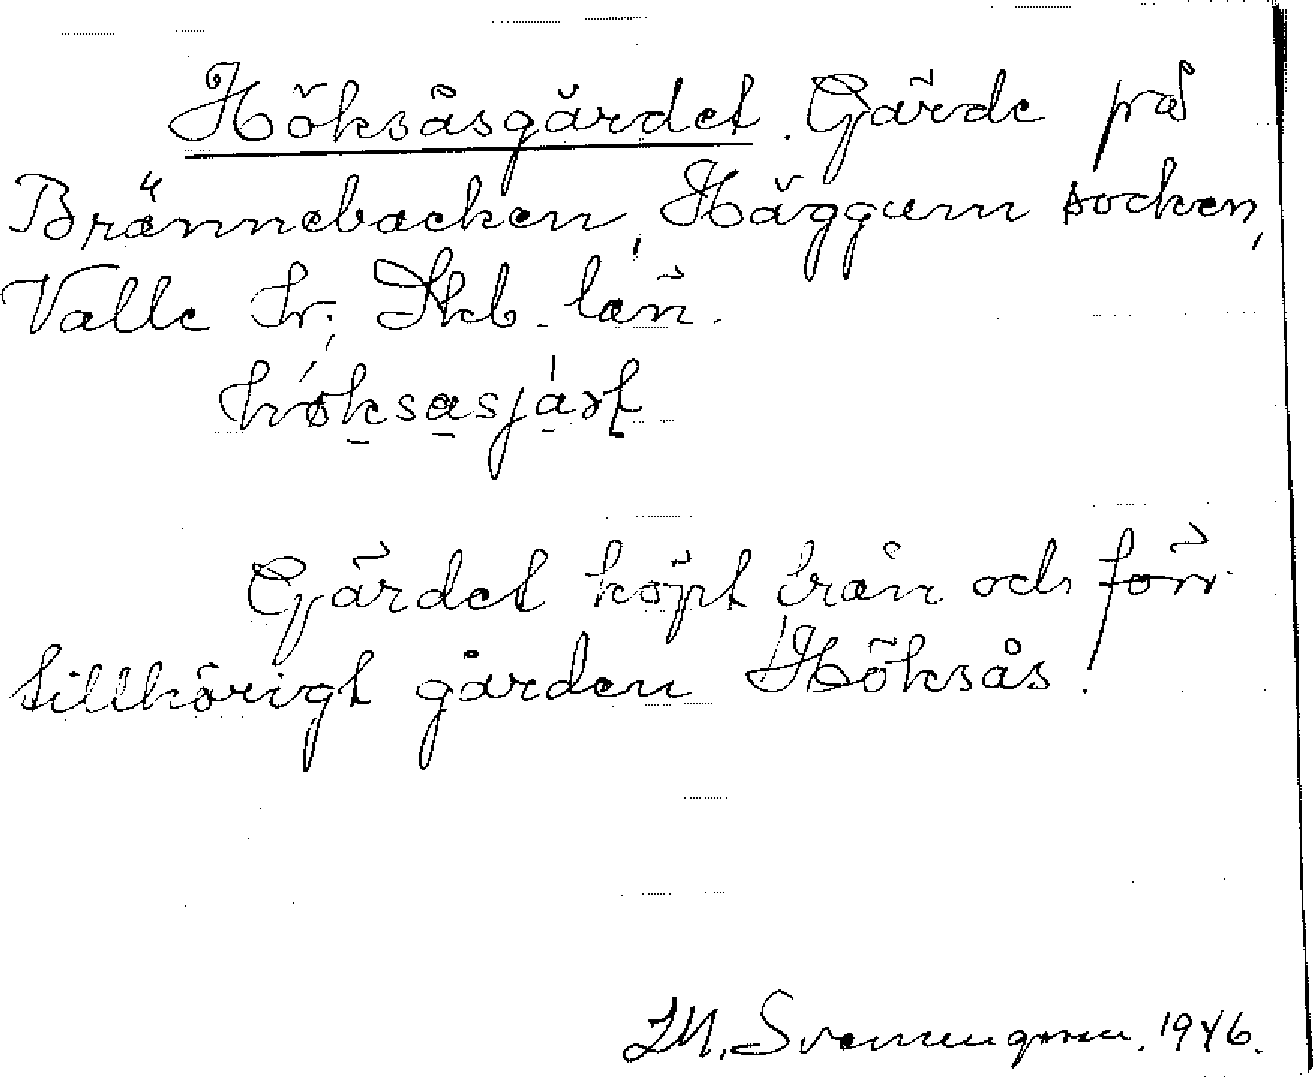 Höksåsgärdet. Gärde på
Brännebacken, Häggum socken,
Valle hr; Skb. län.
Gärdet köpt från och förr
tillhörigt gården Höksås.
Svenungsson. 1946.